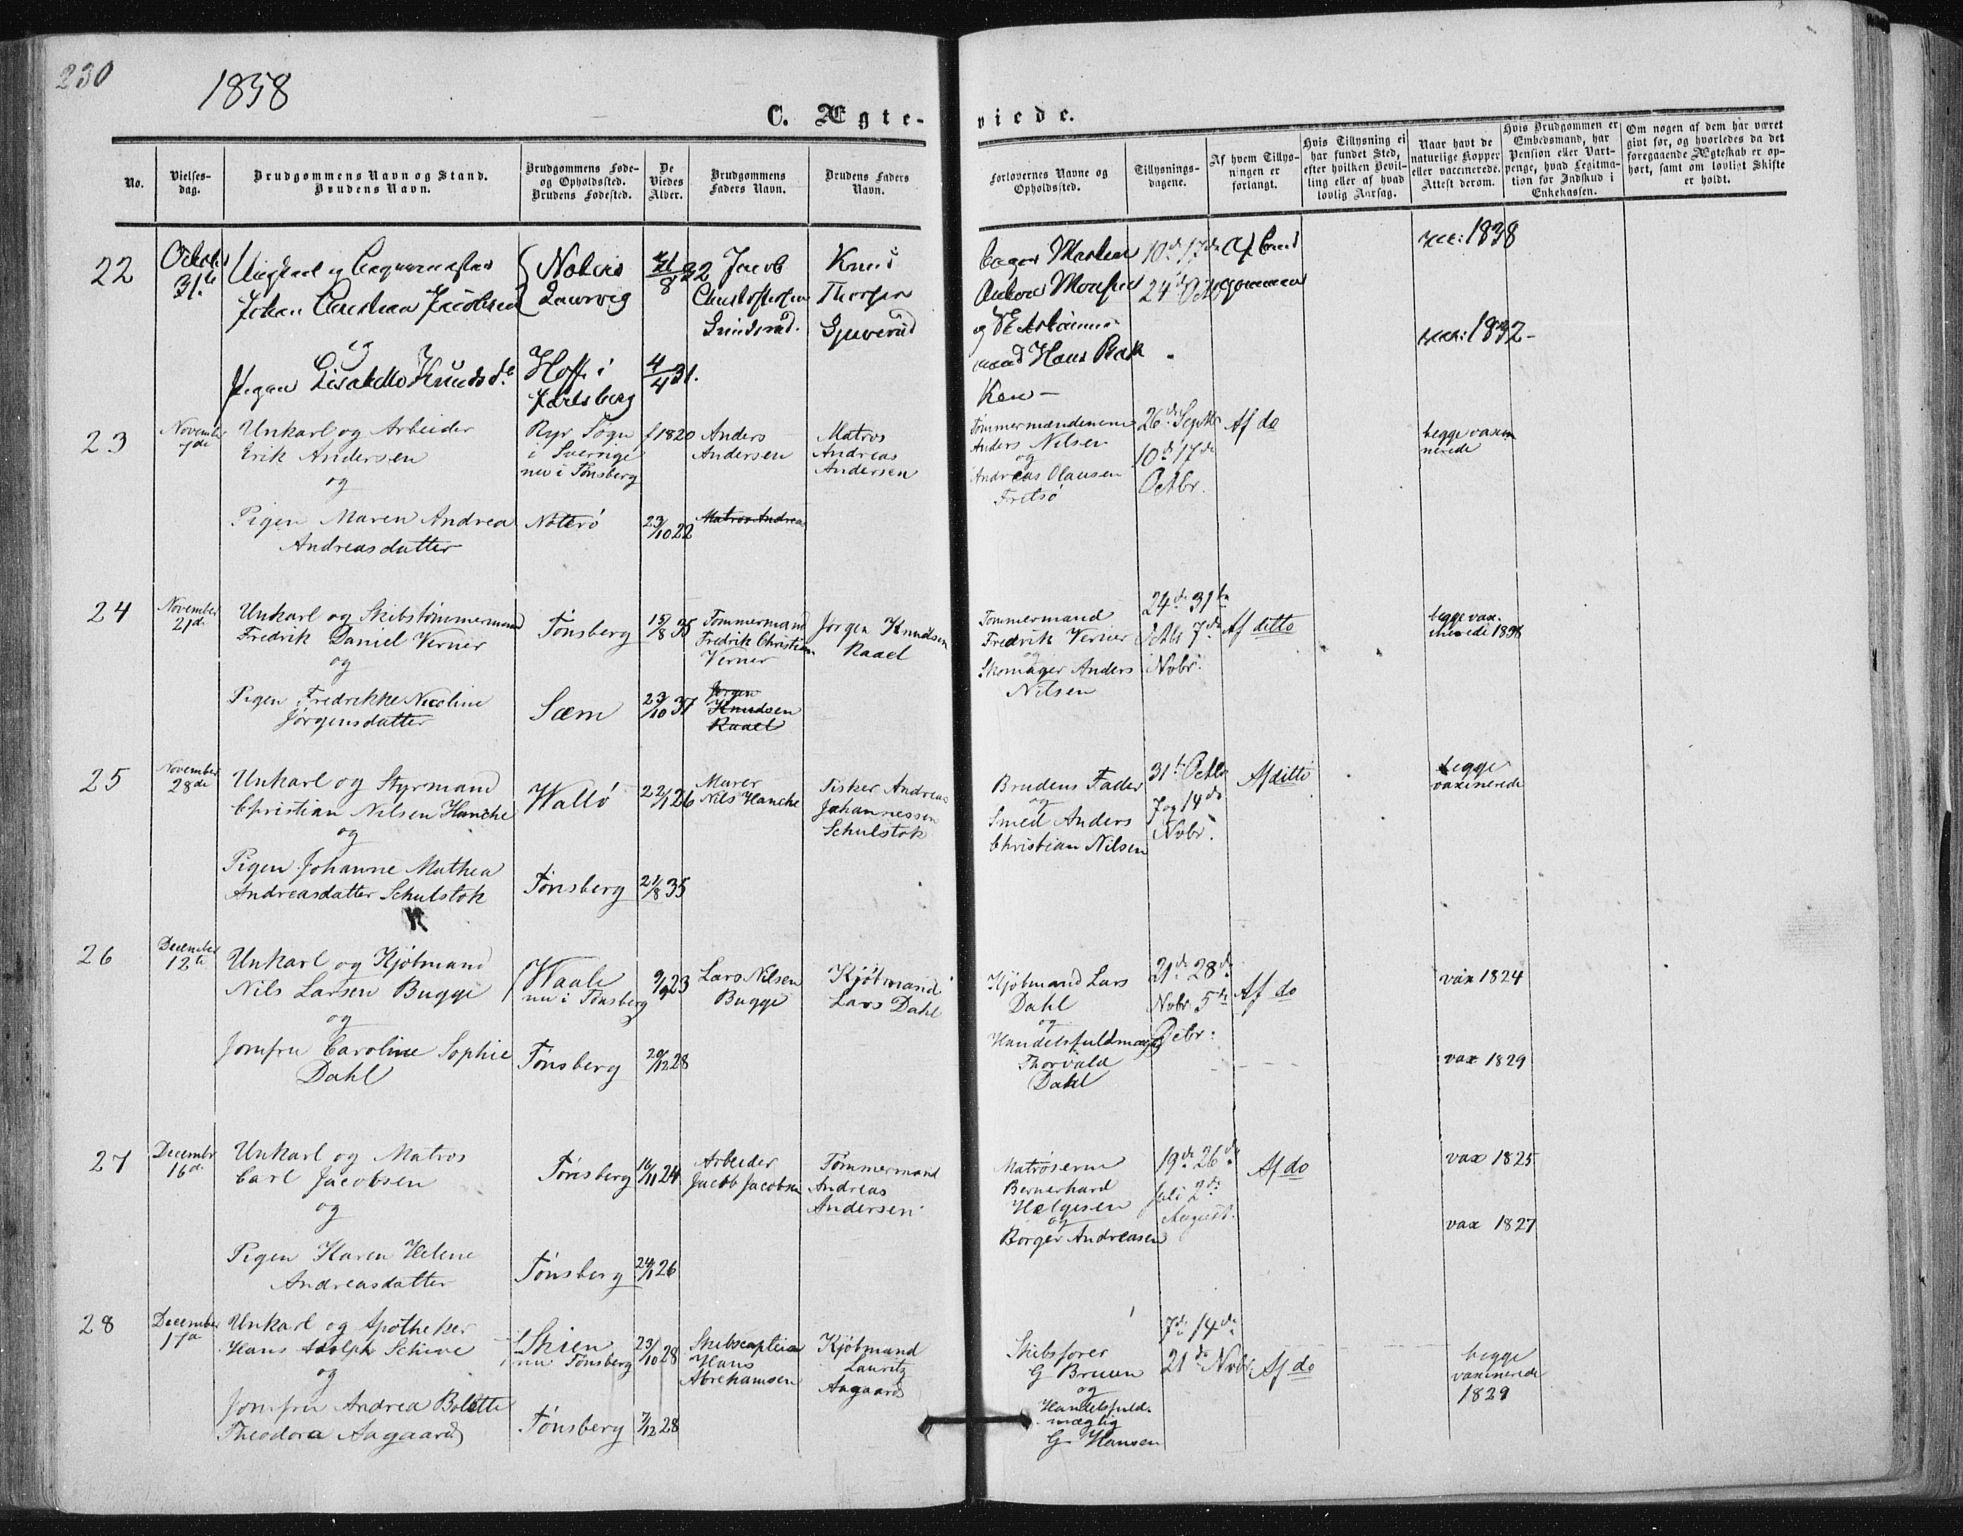 230
1858
C. Ægte-
viede.
No.
Vielses-
dag.
Brudgommens Navn og Stand.
Brudens Navn.
Brudgommens Føde-
og Opholdssted.
Brudens Fødested.
De
Viedes
Alder.
Brudgommens
Faders Navn.
Brudens Faders
Navn.
Forlovernes Navne og
Opholdssted.
Tillysnings-
dagene.
Af hvem Tillys-
ningen er
forlangt.
Hvis Tillysning ei
har fundet Sted,
efter hvilken Bevil-
ling eller af hvad
lovlig Aarsag.
Naar havt de
naturlige Kopper
eller vaccinerede.
Attest derom.
Hvis Brudgommen er
Embedsmand, har
Pension eller Vart-
penge, hvad Legitima-
tion for Indskud i
Enkekassen.
Om nogen af dem har været
givt før, og hvorledes da det
foregaaende Ægteskab er op-
hørt, samt om lovligt Skifte
er holdt.
22
31te
Johan Christian Jacobsen
og
Pigen Knudsd.
Laurvig
Hoff i
Jarlsberg
32
4/4 31.
Jacob
Knud
Thorsen
Anton
og
mand Hans
10de 17de
24de Octbr
1838
1832
23
November
7de
Unkarl og Arbeider
Erik Andersen
og
Pigen Maren Andrea
Andreasdatter
Ryr Sogn
i Sverrige
nu i Tønsberg
Nøterø
1820
23/10 22
Anders
Andersen
Matros Andreas
Matros
Andreas
Andersen
Tømmermændene
Anders Nilsen
og
Andreas Olausen
Fritsø
26de Septbr
10de 17de
Octbr.
Af do
begge vaxi
nerede
24
November
21de
Unkarl og Skibstømmermand
Fredrik Daniel Verner
og
Pigen Fredrikke Nicoline
Jørgensdatter
Tønsberg
Sæm
15/8 35
23/10 37
Tømmermand
Fredrik Christian
Verner
Jørgen
Knudsen
Raael
Jørgen Knudsen
Raael
Tømmermand
Fredrik Verner
og
Skomager Anders
Nilsen
24de 31te
Octbr 7de
Novbr.
Af ditto
begge vax-
25
November
28de
Unkarl og Styrmand
Christian Nilsen Hanche
og
Pigen Johanne Mathea
Andreasdatter Schulstok
Walló
Tønsberg
22/1 26
21/8 35
Murer
Nils Hanche
Fisker Andreas
Johannessen
Schulstok
Brudens Fader
og
Smed Anders
Christian Nilsen
31te Octbr
7 og 14de
Novbr.
Af ditto
begge
vaxinerede
26
December
12te
Unkarl og Kjøbmand
Nils Larsen Bugge
og
Jomfru Caroline Sophie
Dahl
Waale
nu i Tønsberg
Tønsberg
9/9 23
20/12 28
Lars Nilsen
Bugge
Kjøbmand
Lars Dahl
Kjøbmand Lars
Dahl
og
Handelsfuldmægtig
Thorvald
Dahl
21de 28de
Novbr 5te
Af do
vax 1824
vax 1829
27
Decembr
16de
Unkarl og Matros
Carl Jacobsen
og
Pigen Karen Helene
Andreasdatter
Tønsberg
Tønsberg
16/11 24
24/1 26
Arbeider
Jacob Jacobsen
Tømmermand
Andreas
Andersen
Matroserne
Bernerhard
Helgesen
og
Borger Andreasen
19de 26de
Juli 2de
August.
Af do
vax 1825
vax 1827
28
December
17de
Unkarl og Apotheker
Hans Adolph Schive
og
Jomfru Andrea Bolette
Theodora Aagaard
Skien
nu Tønsberg
Tønsberg
23/10 28
7/12 28
Skibscaptein
Hans
Abrehamsen
Kjøbmand
Lauritz
Aagaard
Skibsfører
G Bruun
og
Handelsfuld-
mægtig
G Hansen
7de 14de
21de Novbr
Af do
begge
vaxinerede
1829